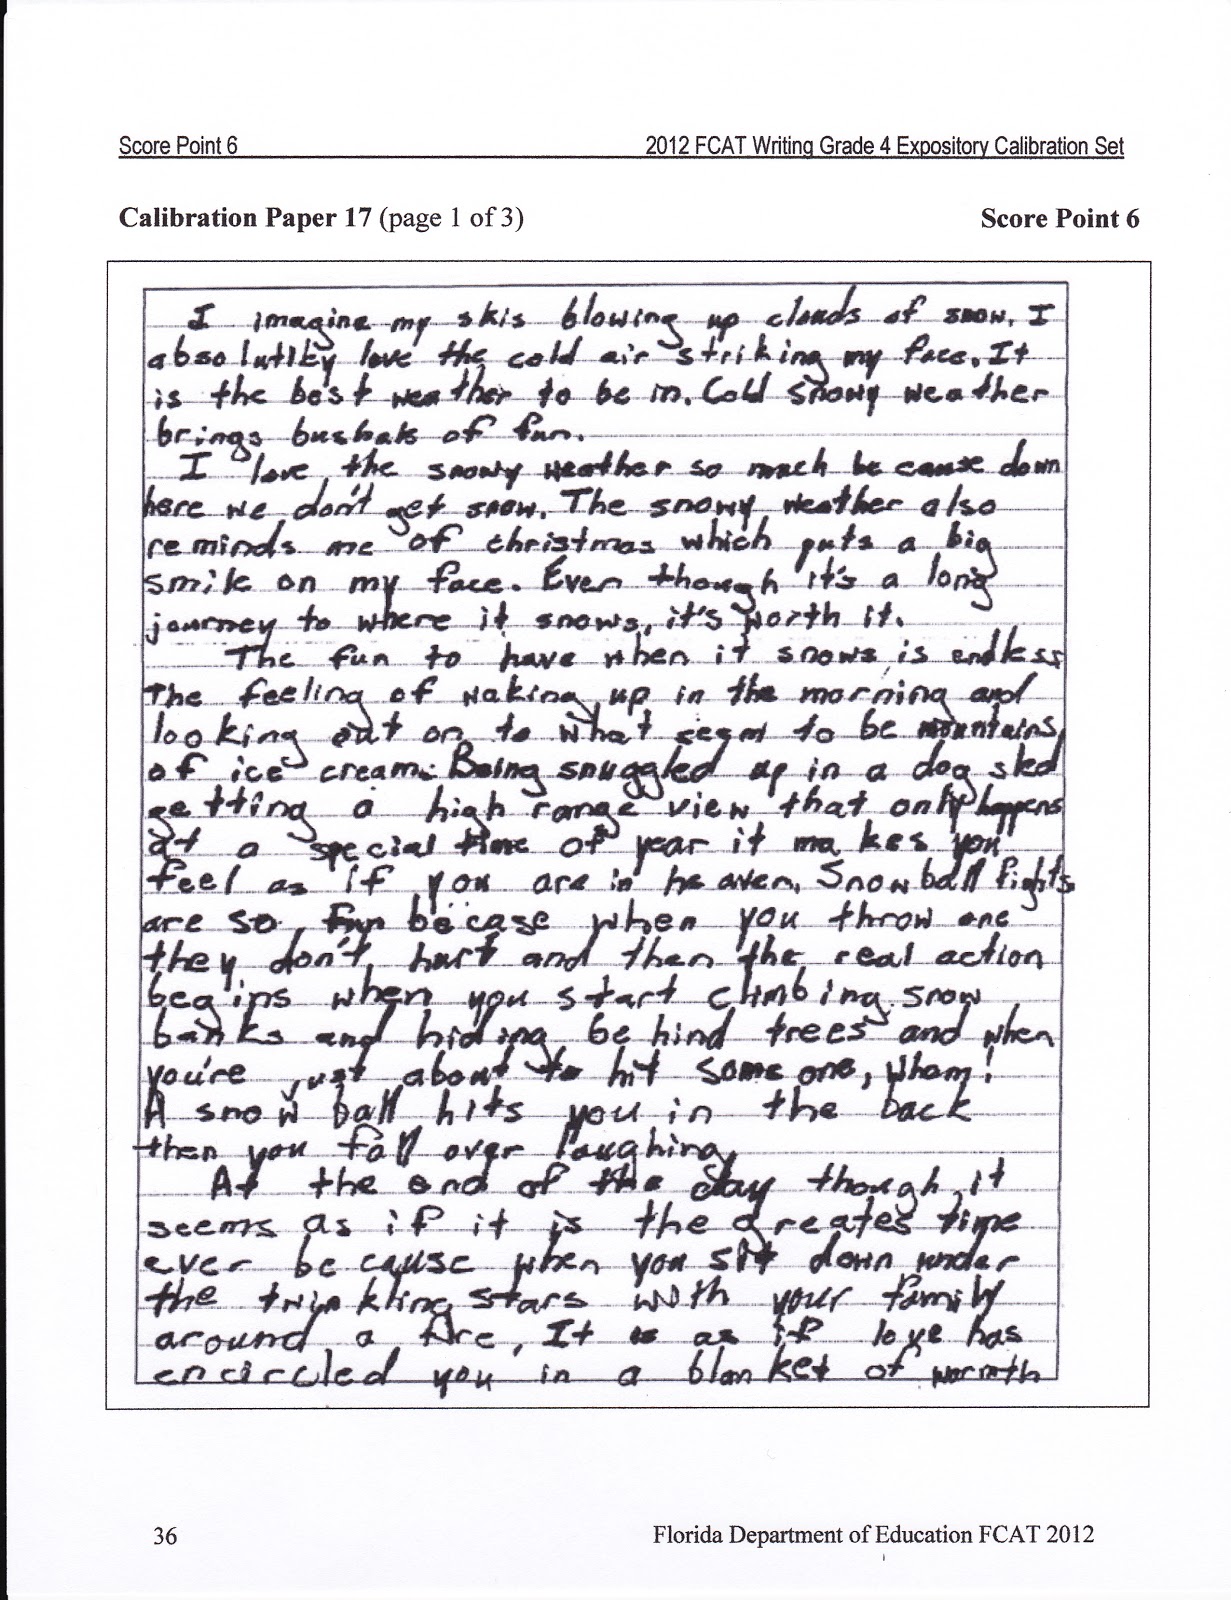 Score Point 6 2012 FCAT Writing Grade 4 Expository Calibration Set
Calibration Paper 17 (page 1 of 3) Score Point 6
I imagine my skis blowing up clouds of snow. I
absolutlky love the cold air striking my face. It
is the best weather to be in. Cold snowy weather
brings bushals of fun.
I love the snowy weather so much be cause down
here we don't get snow. The snowy weather also
reminds me of christmas which puts a big
smile on my face. Even though it's a long
journey to where it snows, it's worth it.
The fun to have when it snows is endless
The feeling of waking up in the morning and
looking out on to what seem to be mountains
of ice cream. Being snuggled up in a dog sled
getting a high range view that only happens
at a special time of year it makes you
feel as if you are in heaven. Snowball fights
are so fun becase when you throw one
they don't hurt and then the real action
begins when you start climbing snow
banks and hiding behind trees and when
you're just about to hit some one, wham!
A snow ball hits you in the back
then you fall over laughing.
At the end of the day though, it
seems as if it is the greates time
ever be cause when you sit down under
the twinkling stars with your family
around a fire, It is as if love has
encircled you in a blanket of warmth
36 Florida Department of Education FCAT 2012